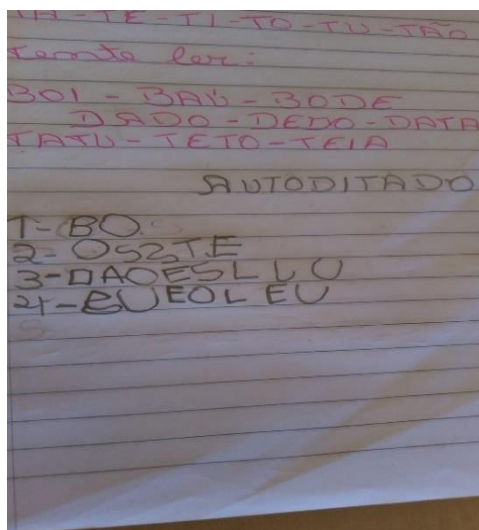 TA-TE-TI-TO-TU-TÃO
tente ler:
BOI - BAÚ - BODE
DADO-DEDO-DATA
TATU-TETO-TEIA
AUTODITADO
1- BO
2- OSZTE
3-DAOESLLU
4-BUEOLEU
5